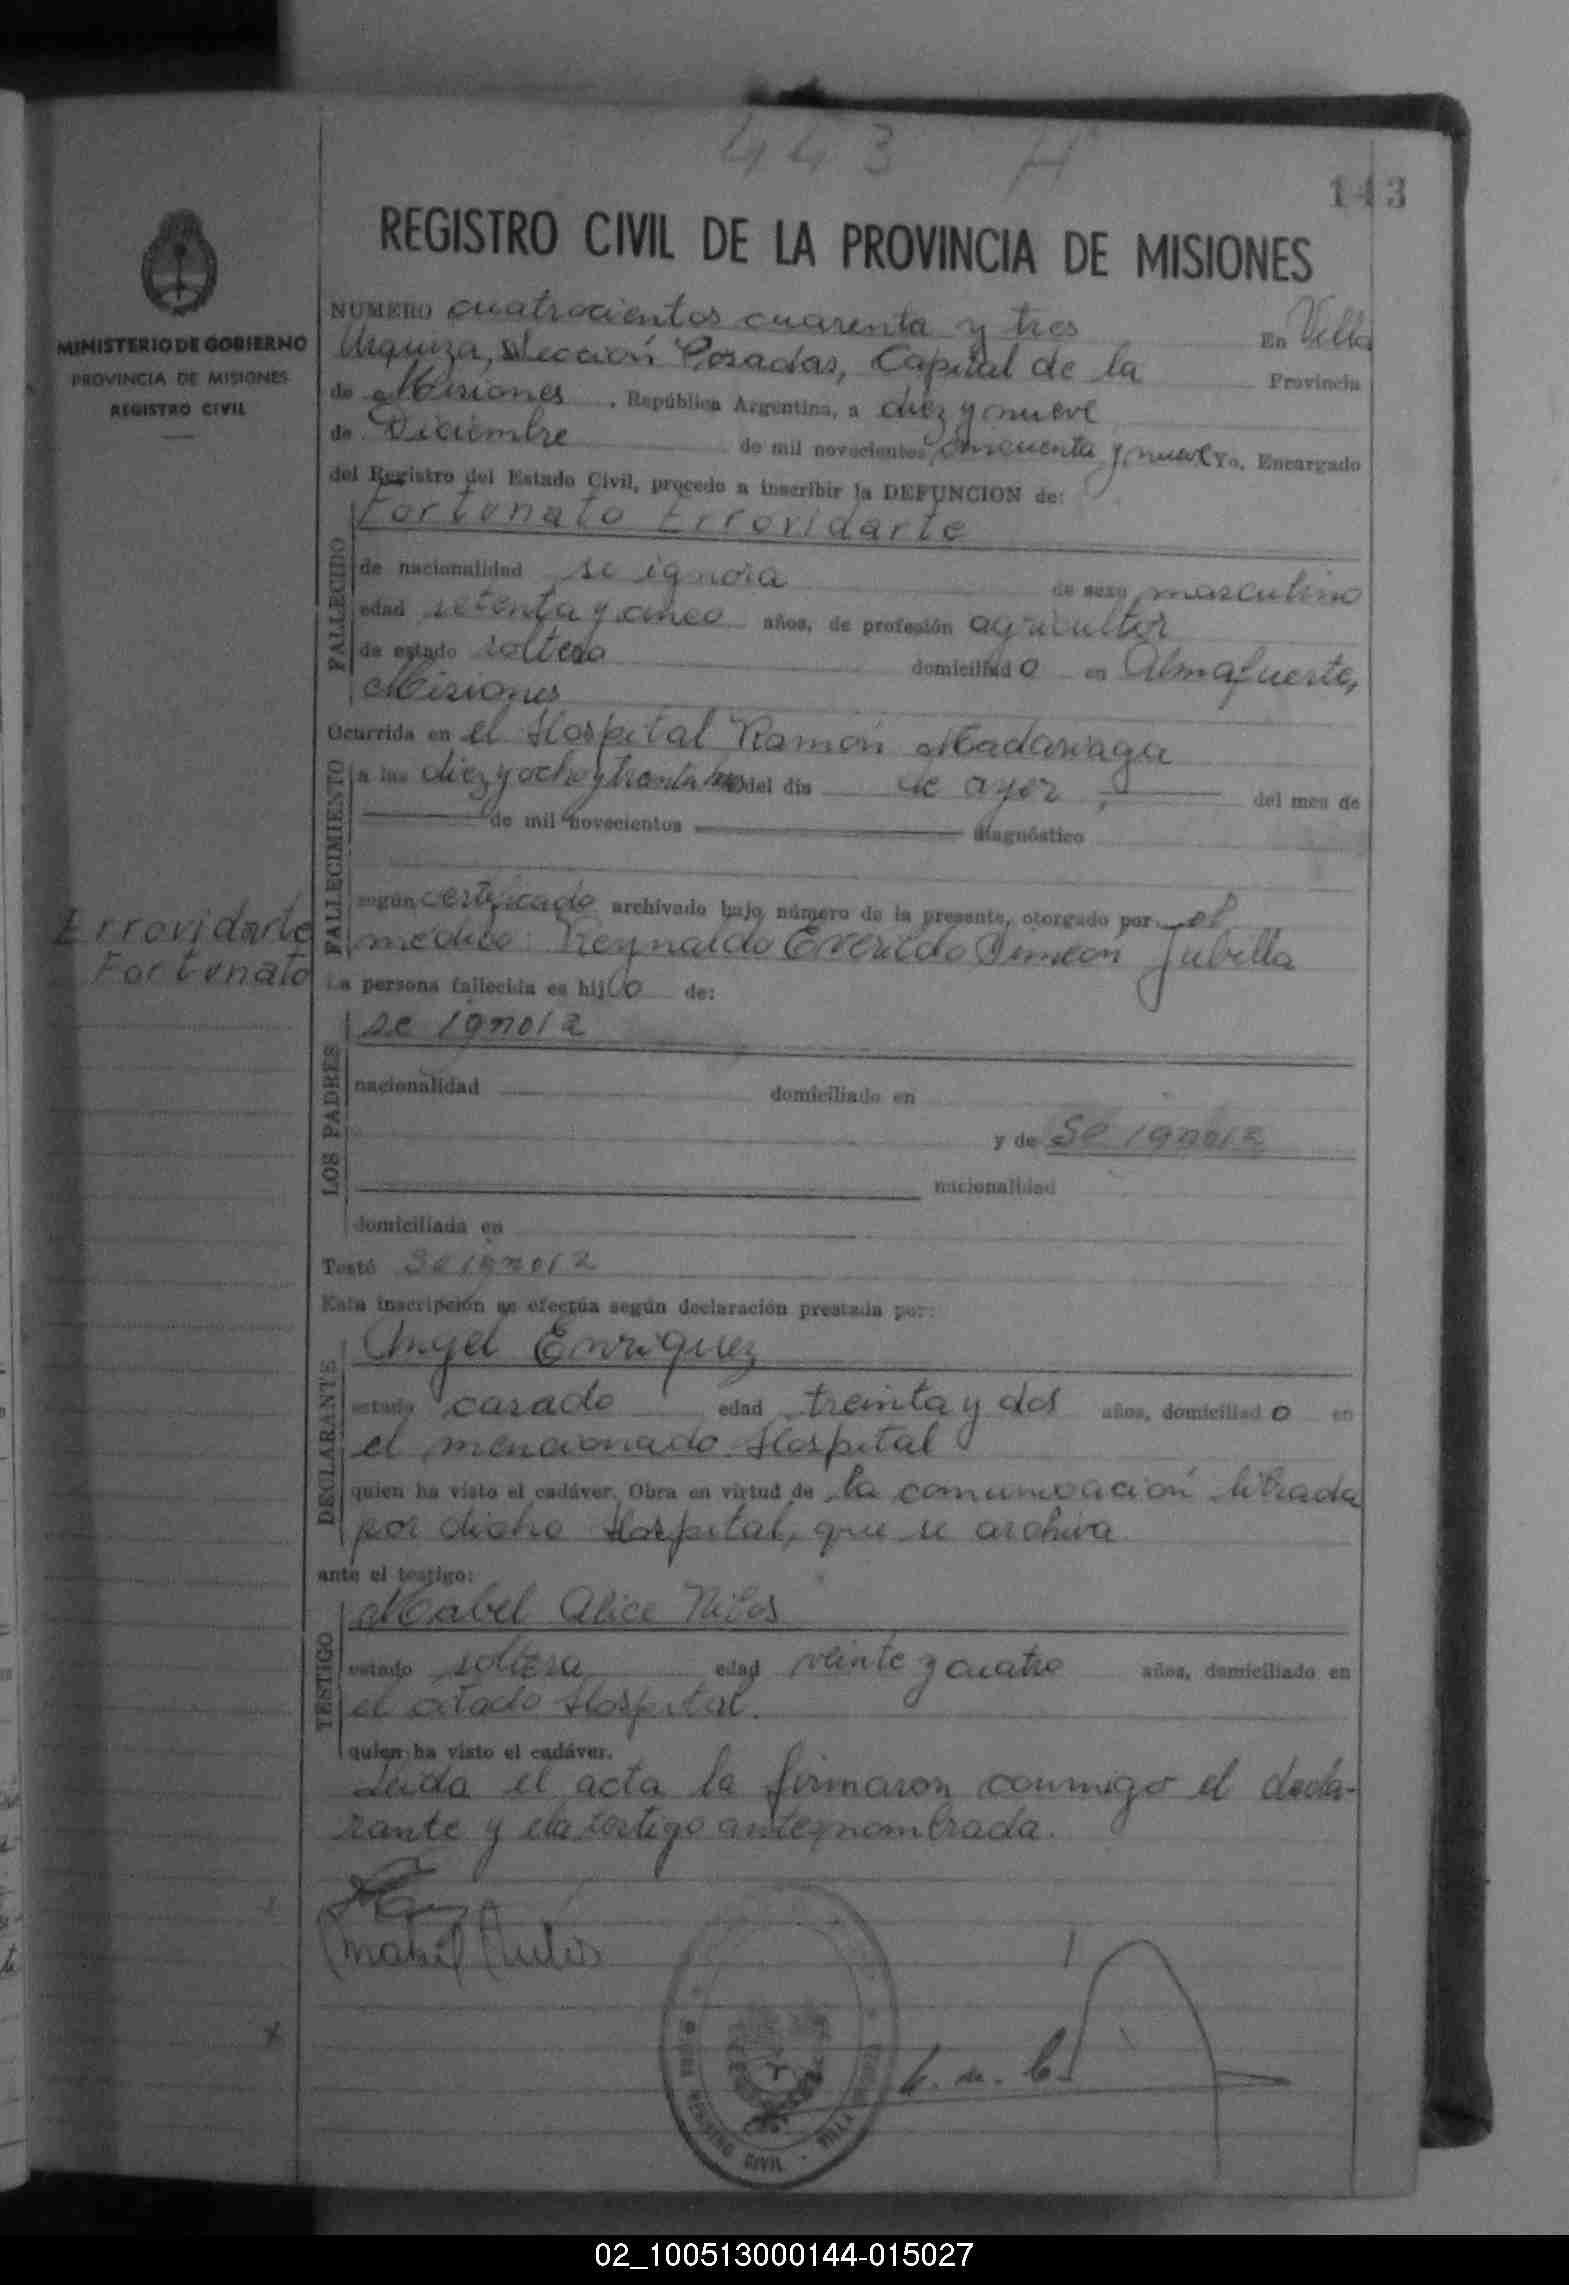 443
143
REGISTRO CIVIL DE LA PROVINCIA DE MISIONES
MINISTERIO DE GOBIERNO
PROVINCIA DE MISIONES
REGISTRO CIVIL
NUMERO cuatrocientos cuarenta y tres En Villa
Urquiza, Sección Posadas, Capital de la Provincia
de Misiones, República Argentina, a diez y nueve
de Diciembre de mil novecientos cincuenta y nueve Yo, Encargado
del Registro del Estado Civil, procedo a inscribir la DEFUNCION de:
Fortunato Errovidarte
FALLECIDO
de nacionalidad se ignora de sexo masculino
edad setenta y cinco años, de profesión agricultor
de estado soltero domiciliado en Almafuerte,
Misiones
Ocurrida en el Hospital Ramón Madariaga
FALLECIMIENTO
a las diez y ocho y treinta del día de ayer, del mes de
de mil novecientos diagnóstico
según certificado archivado bajo número de la presente, otorgado por el
médico: Reynaldo Everildo Simeón Jubilla
Errovidarte
Fortunato
La persona fallecida es hijo de:
LOS PADRES
se ignora
nacionalidad domiciliado en
y de Se ignora
nacionalidad
domiciliada en
Testó Se ignora
Esta inscripción se efectúa según declaración prestada por:
DECLARANTE
Angel Enriquez
estado casado edad treinta y dos años, domiciliado en
el mencionado Hospital
quien ha visto el cadáver. Obra en virtud de la comunicación librada
por dicho Hospital, que se archiva
ante el testigo:
TESTIGO
Mabel Alice Nilos
estado soltera edad veinte y cuatro años, domiciliado en
el citado Hospital.
quien ha visto el cadáver.
Leída el acta la firmaron conmigo el decla-
rante y la testigo antes nombrada.
Mabel
REGISTRO CIVIL VILLA
02_100513000144-015027